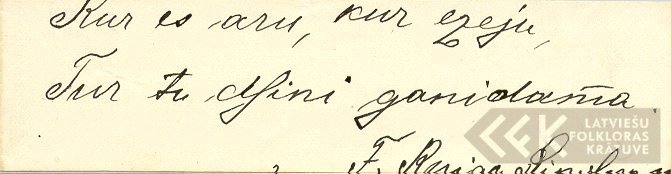 Kur es aru, kur ezeju,
Tur tu dſini ganidamā
LATVIEŠU
FOLKLORAS
KRĀTUVE
F.